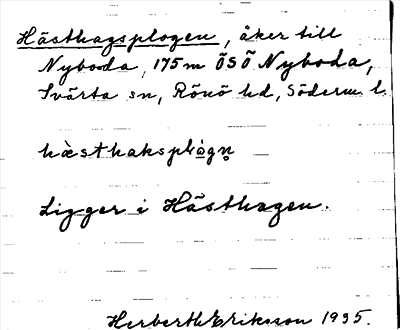 Hästhagsplogen, åker till
Nyboda, 175 m ÖSÖ Nyboda,
Svärta sn, Rönö hd, Söderm. l.
hæ̀sthaksplo̩gn̥
Ligger i Hästhagen.
Herbert Eriksson 1935.